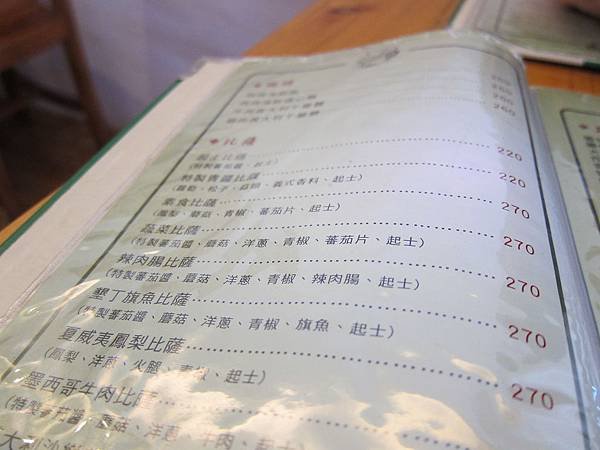 260
260
比薩
起士比薩 220
(特製蕃茄醬、起士)
特製青醬比薩 220
(羅勒、松子、蒜頭、義式香料、起士)
素食比薩 270
(鳳梨、蘑菇、青椒、蕃茄片、起士)
蔬菜比薩 270
(特製蕃茄醬、蘑菇、洋蔥、青椒、蕃茄片、起士)
辣肉腸比薩 270
(特製蕃茄醬、蘑菇、洋蔥、青椒、辣肉腸、起士)
墾丁旗魚比薩 270
(特製蕃茄醬、蘑菇、洋蔥、青椒、旗魚、起士)
夏威夷鳳梨比薩 270
(鳳梨、洋蔥、火腿、青椒、起士)
墨西哥牛肉比薩
(特製蕃茄醬、蘑菇、洋蔥、牛肉、起士)